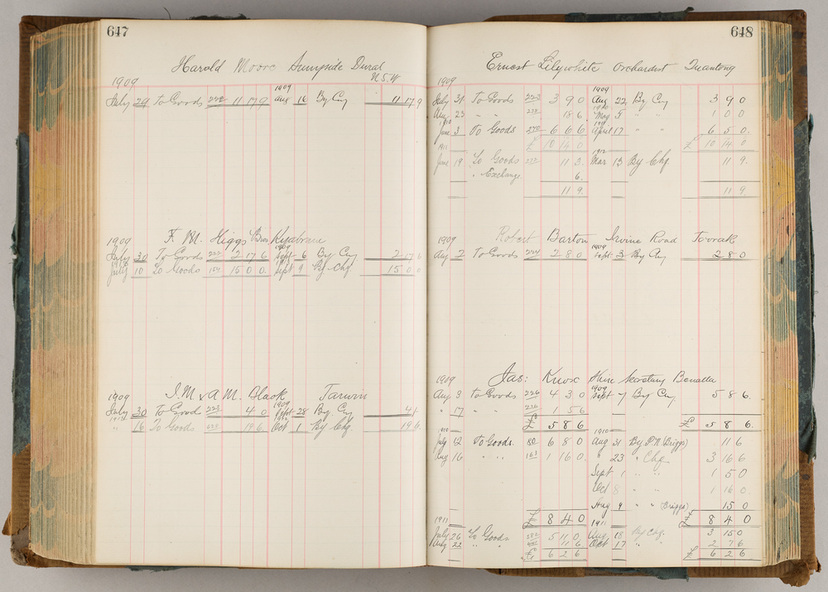 647
Harold Moore Sunnyside Dural
N.S.W
1909
1909
July 29 To Goods 222 11 17 9 Aug 16 By Cy 11 17 9
1909 F. M. Higgs Kyabram
1909
July 30 To Goods 2 17 6 Sept 6 By Cy 2 17 6
July 10 To Goods 15 0 0 Sept 9 By Chq 15 0 0
1909 J. M. & A. M. Black Tarwin
1909
July 30 To Goods 4 0 Sept 28 By Cy 4
" 16 To Goods 19 6 Oct 1 By Chq 19 6
648
Ernest Lilywhite Orchardist Quantong
1909
1909
July 31 To Goods 223 3 9 0 Aug 22 By Cy 3 9 0
Aug 23 " " 18 6 May 5 " " 1 0 0
June 3 To Goods 6 6 6 April 17 " 6 5 0
£ 10 14 0 £ 10 14 0
1911
1912
June 19 To Goods 11 3 Mar 13 By Chq 11 9
" Exchange 6
11 9 11 9
1909 Robert Barton Irvine Road Toorak
1909
Aug 2 To Goods 224 2 8 0 Sept 3 By Cy 2 8 0
1909 Jas: Knox Shire Secretary Benalla
1909
Aug 3 To Goods 224 4 3 0 Sept 7 By Cy 5 8 6
" 17 " " 1 5 6
£ 5 8 6 £ 5 8 6
1910
July 12 To Goods 6 8 0 Aug 31 By (Briggs) 11 6
Aug 16 " " 1 16 0 " 23 " Chq 3 16 6
Sept 1 " " 1 5 0
Oct 8 " " 1 16 0
Aug 9 " " (Briggs) 15 0
£ 8 4 0 £ 8 4 0
1911
1911
July 26 To Goods 5 11 0 Aug 18 By Chq 3 15 0
Aug 22 " " 11 6 Oct 17 " " 2 7 6
£ 6 2 6 £ 6 2 6